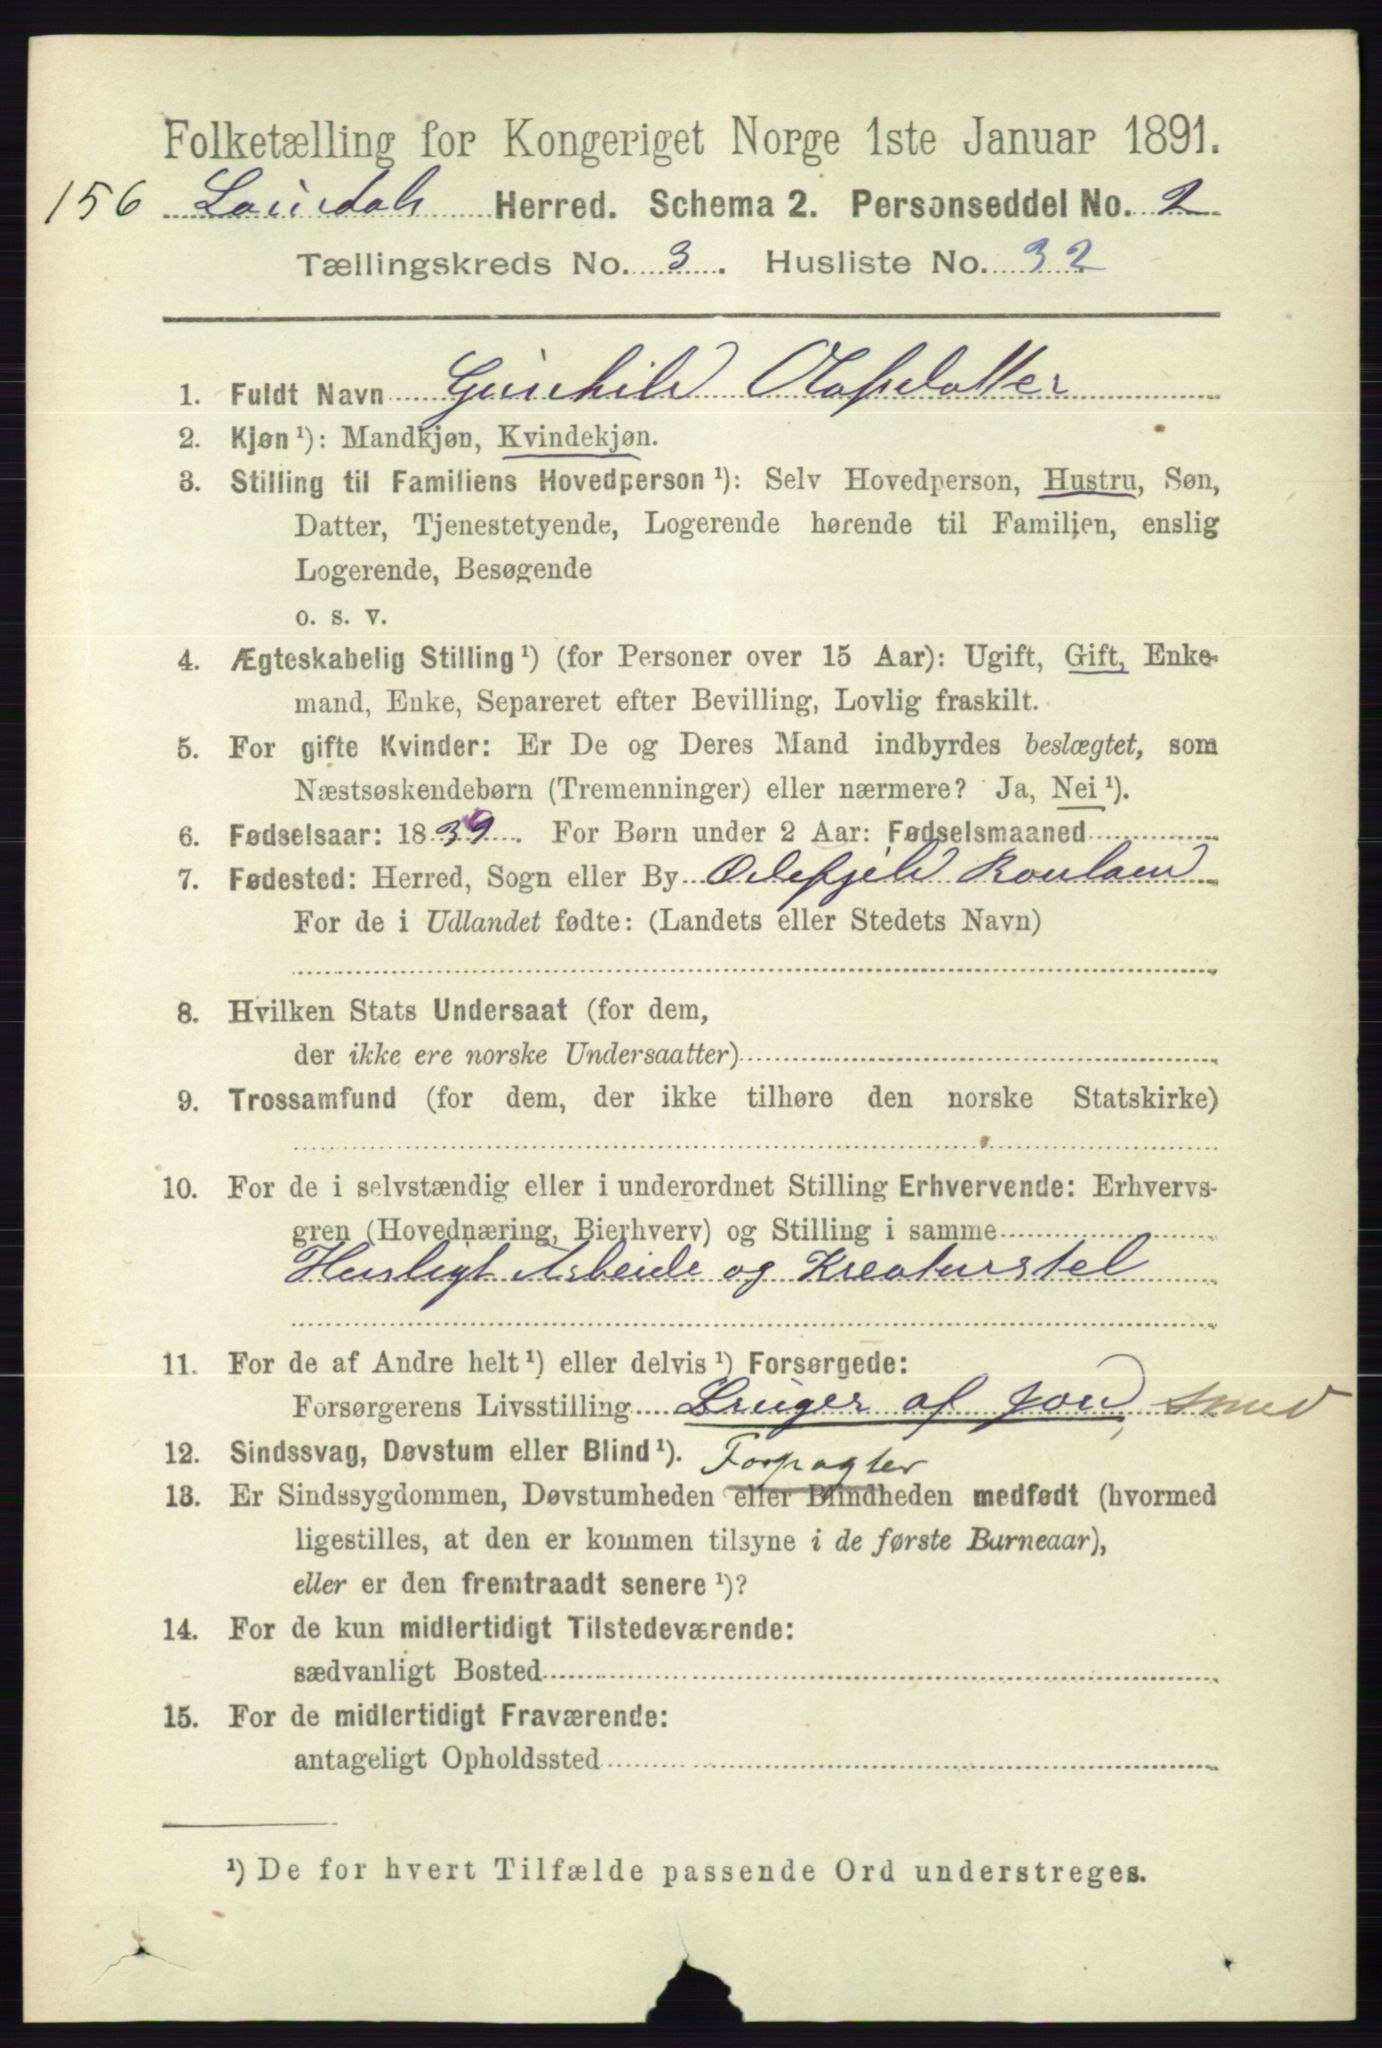 Folketælling for Kongeriget Norge 1ste Januar 1891.
156 Laurdal Herred. Schema 2. Personseddel No. 2
Tællingskreds No. 3. Husliste No. 32
1. Fuldt Navn Gunhild Olafsdatter
2. Kjøn ¹): Mandkjøn, Kvindekjøn.
3. Stilling til Familiens Hovedperson ¹): Selv Hovedperson, Hustru, Søn,
Datter, Tjenestetyende, Logerende hørende til Familien, enslig
Logerende, Besøgende
o. s. v.
4. Ægteskabelig Stilling ¹) (for Personer over 15 Aar): Ugift, Gift, Enke-
mand, Enke, Separeret efter Bevilling, Lovlig fraskilt.
5. For gifte Kvinder: Er De og Deres Mand indbyrdes beslægtet, som
Næstsøskendebørn (Tremenninger) eller nærmere? Ja, Nei ¹).
6. Fødselsaar: 1839. For Børn under 2 Aar: Fødselsmaaned
7. Fødested: Herred, Sogn eller By Odefjeld Rauland
For de i Udlandet fødte: (Landets eller Stedets Navn)
8. Hvilken Stats Undersaat (for dem,
der ikke ere norske Undersaatter)
9. Trossamfund (for dem, der ikke tilhøre den norske Statskirke)
10. For de i selvstændig eller i underordnet Stilling Erhvervende: Erhvervs-
gren (Hovednæring, Bierhverv) og Stilling i samme
Husligt Arbeide og Kreaturstel
11. For de af Andre helt ¹) eller delvis ¹) Forsørgede:
Forsørgerens Livsstilling Bruger af Jord, Smed
12. Sindssvag, Døvstum eller Blind ¹). Forpagter
13. Er Sindssygdommen, Døvstumheden eller Blindheden medfødt (hvormed
ligestilles, at den er kommen tilsyne i de første Barneaar),
eller er den fremtraadt senere ¹)?
14. For de kun midlertidigt Tilstedeværende:
sædvanligt Bosted
15. For de midlertidigt Fraværende:
antageligt Opholdssted
¹) De for hvert Tilfælde passende Ord understreges.